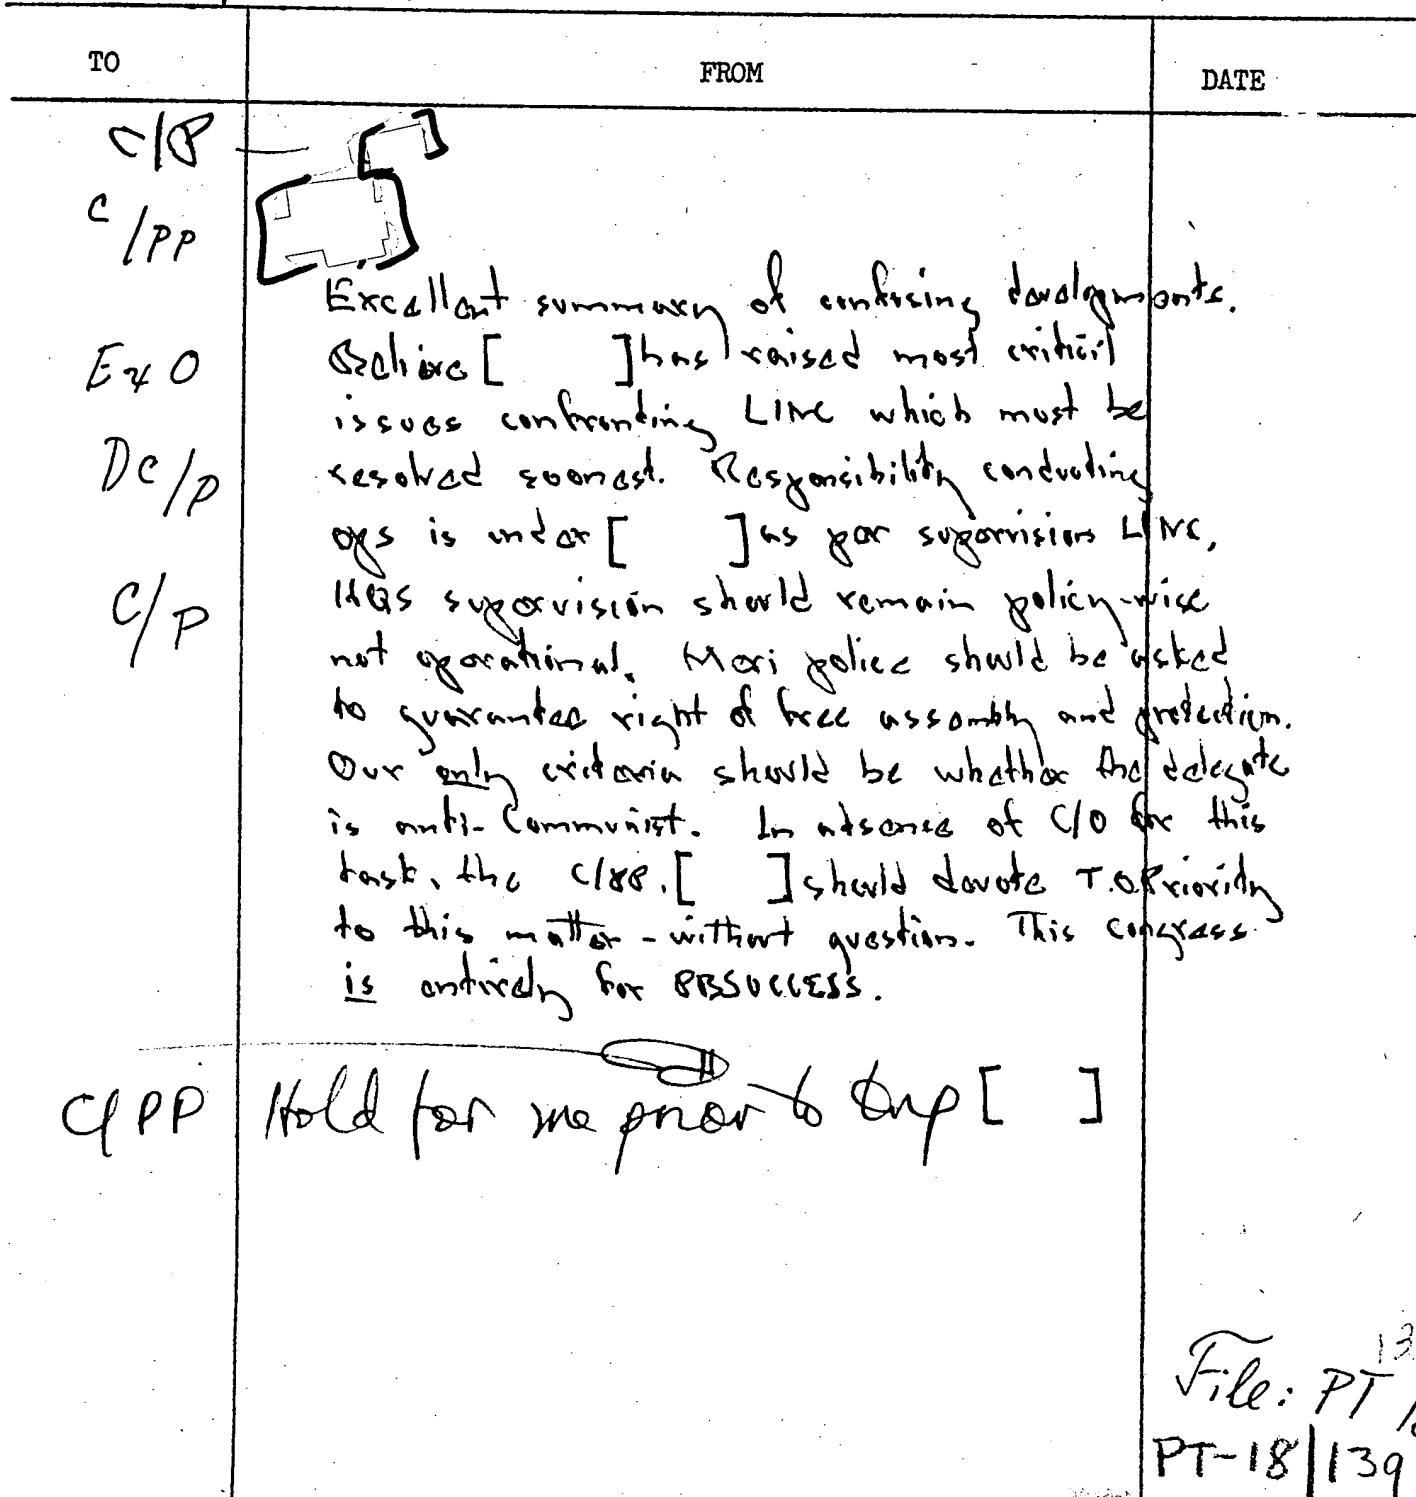 TO FROM DATE
C/P
C/PP
Excellent summary of confusing developments.
ExO Believe [ ] has raised most critical
issues confronting LINC which must be
DC/P resolved soonest. Responsibility conducting
ops is under [ ] as per supervision LINC.
C/P HQS supervision should remain policy-wise
not operational. Mexi police should be asked
to guarantee right of free assembly and protection.
Our only criteria should be whether the delegate
is anti-Communist. In absence of C/O for this
task, the [ ] should devote T.O.Priority
to this matter - without question. This congress
is entirely for PBSUCCESS.
C/PP Hold for me prior to trip [ ]
File: PT
PT-18/139